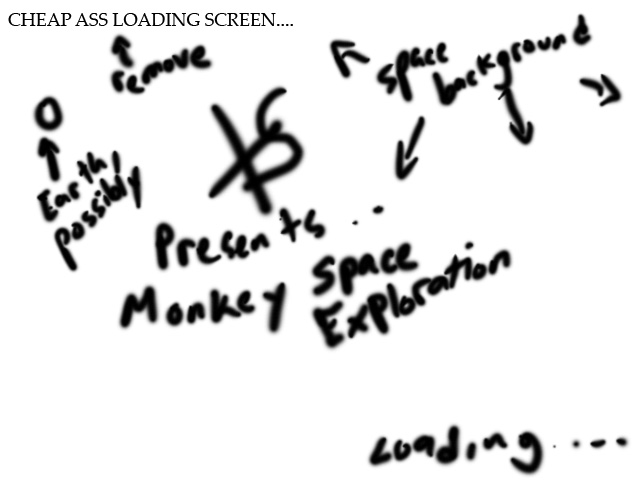 CHEAP ASS LOADING SCREEN....
remove
space
background
Earth
possibly
Presents ..
Monkey Space
Exploration
Loading ....